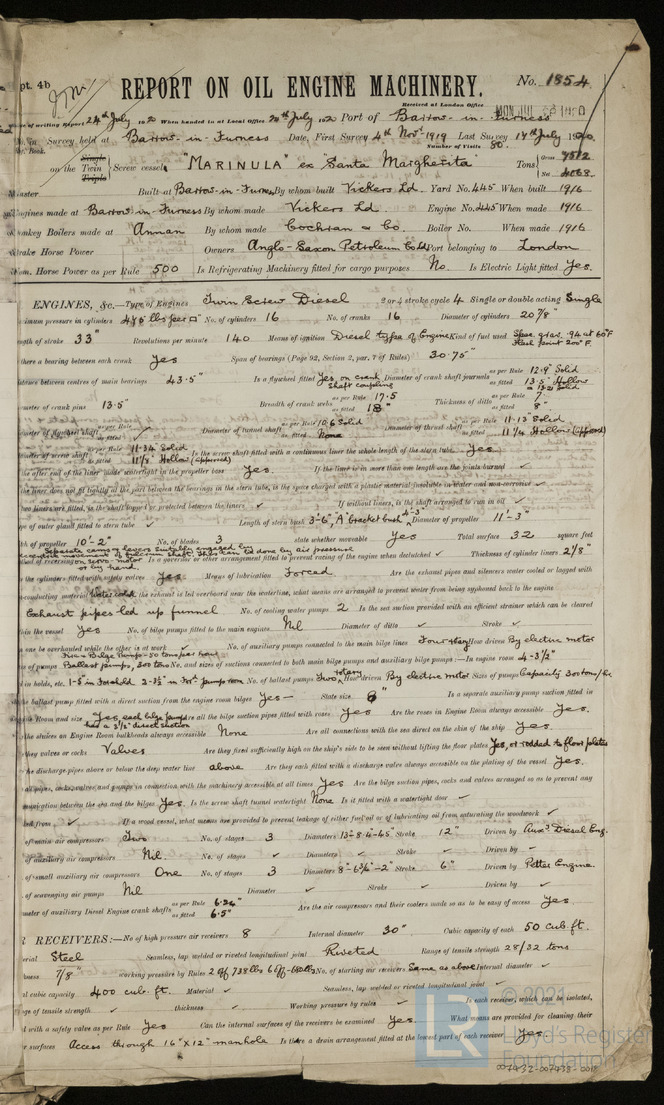 pt. 4b
REPORT ON OIL ENGINE MACHINERY.
No. 1854
Received at London Office
of writing Report 24th July 192 When handed in at Local Office 24th July 192 Port of Barrow-in-Furness
Survey held at Barrow-in-Furness Date, First Survey 4th Novr 1919 Last Survey 17th July 1920
Book. Number of Visits 80
on the Single Twin Triple Screw vessel "MARINULA" ex Santa Margherita Tons Gross 7552 Net 4068
Master Built at Barrow-in-Furness By whom built Vickers Ld. Yard No. 445 When built 1916
Engines made at Barrow-in-Furness By whom made Vickers Ld. Engine No. 445 When made 1916
Donkey Boilers made at Annan By whom made Cochran & Co. Boiler No. When made 1916
Brake Horse Power Owners Anglo-Saxon Petroleum Co Ld Port belonging to London
Nom. Horse Power as per Rule 500 Is Refrigerating Machinery fitted for cargo purposes No. Is Electric Light fitted Yes.
ENGINES, &c.—Type of Engines Twin Screw Diesel 2 or 4 stroke cycle 4 Single or double acting Single
maximum pressure in cylinders 475 lbs per □" No. of cylinders 16 No. of cranks 16 Diameter of cylinders 20 7/8"
length of stroke 33" Revolutions per minute 140 Means of ignition Diesel type of Engine Kind of fuel used Spec. grav. .94 at 60°F Flash point 200°F.
there a bearing between each crank Yes Span of bearings (Page 92, Section 2, par. 7 of Rules) 30.75"
distance between centres of main bearings 43.5" Is a flywheel fitted Yes, on crank shaft coupling Diameter of crank shaft journals as per Rule 12.9" Solid as fitted 13.5" Hollow
diameter of crank pins 13.5" Breadth of crank webs as per Rule 17.5 as fitted 18" Thickness of ditto as per Rule 7 as fitted 8"
as per Rule as fitted ✓ Diameter of tunnel shaft as per Rule 10.6 Solid as fitted None Diameter of thrust shaft as per Rule 11.13" Solid as fitted 11 1/4 Hollow (Approved)
diameter of screw shaft as per Rule 11.34 Solid as fitted 11 1/2" Hollow (Approved) Is the screw shaft fitted with a continuous liner the whole length of the stern tube Yes
the after end of the liner made watertight in the propeller boss Yes. If the liner is in more than one length are the joints burned ✓
the liner does not fit tightly at the part between the bearings in the stern tube, is the space charged with a plastic material insoluble in water and non-corrosive ✓
two liners are fitted, is the shaft lapped or protected between the liners ✓ If without liners, is the shaft arranged to run in oil ✓
of outer gland fitted to stern tube ✓ Length of stern bush 3'-6", 'A' bracket bush 4'-3" Diameter of propeller 11'-3"
of propeller 10'-2" No. of blades 3 state whether moveable Yes Total surface 32 square feet
of reversing Is a governor or other arrangement fitted to prevent racing of the engine when declutched ✓ Thickness of cylinder liners 2 1/8"
the cylinders fitted with safety valves Yes Means of lubrication Forced Are the exhaust pipes and silencers water cooled or lagged with
non-conducting material Water cooled the exhaust is led overboard near the waterline, what means are arranged to prevent water from being syphoned back to the engine
Exhaust pipes led up funnel No. of cooling water pumps 2 Is the sea suction provided with an efficient strainer which can be cleared
the vessel Yes No. of bilge pumps fitted to the main engines Nil Diameter of ditto ✓ Stroke ✓
one be overhauled while the other is at work ✓ No. of auxiliary pumps connected to the main bilge lines Four rotary How driven By electric motor
of pumps Two Bilge Pumps - 50 tons per hour Ballast pumps, 300 tons No. and sizes of suctions connected to both main bilge pumps and auxiliary bilge pumps:—In engine room 4-3 1/2"
in holds, etc. No. of ballast pumps Two, Rotary How driven By electric motor Sizes of pumps Capacity 300 tons/hr
the ballast pump fitted with a direct suction from the engine room bilges Yes State size 8" Is a separate auxiliary pump suction fitted in
Engine Room and size Yes, each bilge pump has a 3 1/2" direct suction Are all the bilge suction pipes fitted with roses Yes Are the roses in Engine Room always accessible Yes.
the sluices on Engine Room bulkheads always accessible None Are all connections with the sea direct on the skin of the ship Yes.
they valves or cocks Valves Are they fixed sufficiently high on the ship's side to be seen without lifting the floor plates Yes, or rodded to floor plates
the discharge pipes above or below the deep water line above Are they each fitted with a discharge valve always accessible on the plating of the vessel Yes.
all pipes, cocks, valves, and pumps in connection with the machinery accessible at all times Yes Are the bilge suction pipes, cocks and valves arranged so as to prevent any
communication between the sea and the bilges Yes. Is the screw shaft tunnel watertight None Is it fitted with a watertight door ✓
worked from ✓ If a wood vessel, what means are provided to prevent leakage of either fuel oil or of lubricating oil from saturating the woodwork ✓
of main air compressors Two No. of stages 3 Diameters 13"-8.4-45" Stroke 12" Driven by Auxy Diesel Eng.
of auxiliary air compressors Nil. No. of stages ✓ Diameters ✓ Stroke ✓ Driven by ✓
of small auxiliary air compressors One No. of stages 3 Diameters 8"-6 3/4"-2" Stroke 6" Driven by Petter Engine.
of scavenging air pumps Nil Diameter ✓ Stroke ✓ Driven by ✓
diameter of auxiliary Diesel Engine crank shafts as per Rule 6.24" as fitted 6.5" Are the air compressors and their coolers made so as to be easy of access Yes.
RECEIVERS:—No of high pressure air receivers 8 Internal diameter 30" Cubic capacity of each 50 cub. ft.
material Steel Seamless, lap welded or riveted longitudinal joint Riveted Range of tensile strength 28/32 tons
7/8" working pressure by Rules No. of starting air receivers Same as above Internal diameter ✓
cubic capacity 400 cub. ft. Material ✓ Seamless, lap welded or riveted longitudinal joint ✓
range of tensile strength ✓ thickness ✓ Working pressure by rules ✓ Is each receiver, which can be isolated,
with a safety valve as per Rule Yes Can the internal surfaces of the receivers be examined Yes. What means are provided for cleaning their
surfaces Access through 16"x12" manhole Is there a drain arrangement fitted at the lowest part of each receiver Yes.
LR © 2021
Lloyd's Register
Foundation
007432-007438-0018